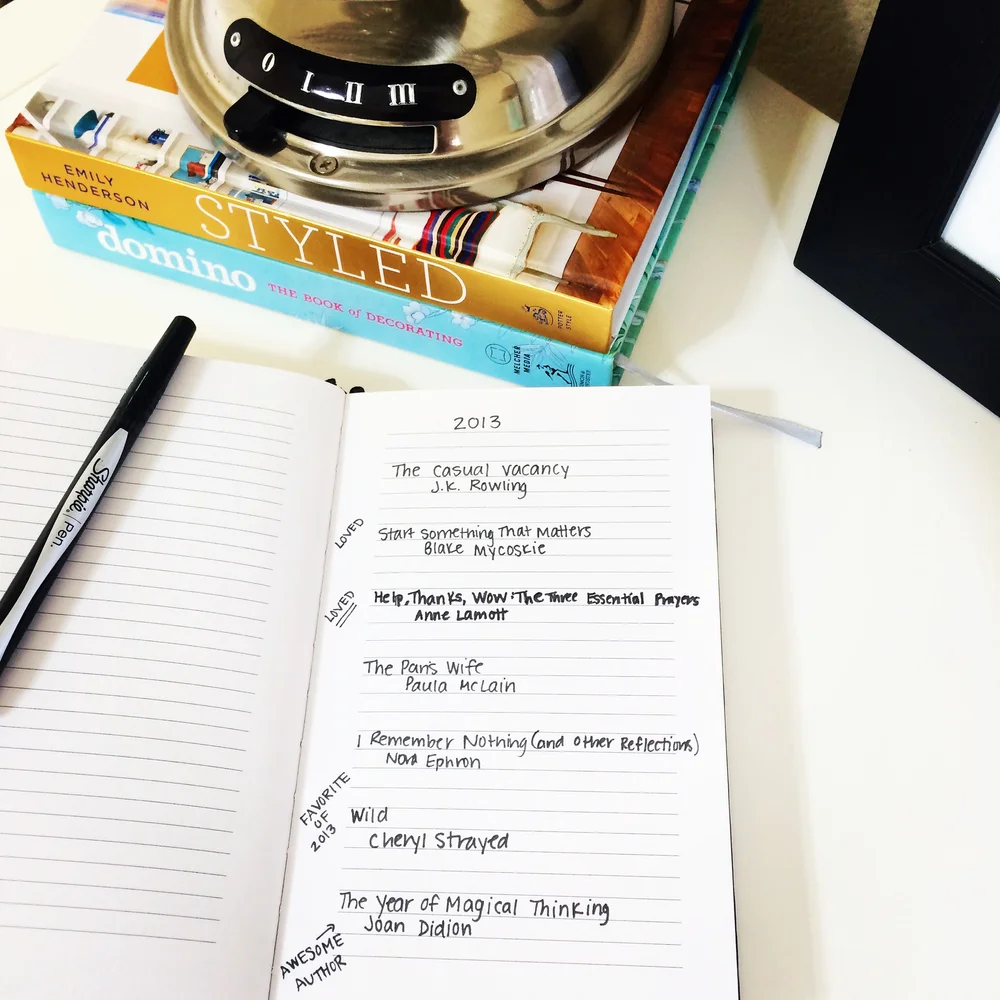 0 I II III
EMILY
HENDERSON
STYLED
POTTER
STYLE
domino
THE BOOK of DECORATING
MELCHER
MEDIA
Sharpie. Pen.
2013
The Casual Vacancy
J.K. Rowling
LOVED
Start Something That Matters
Blake Mycoskie
LOVED
Help, Thanks, Wow: The Three Essential Prayers
Anne Lamott
The Paris Wife
Paula McLain
I Remember Nothing (and Other Reflections)
Nora Ephron
FAVORITE
OF
2013
Wild
Cheryl Strayed
The Year of Magical Thinking
Joan Didion
AWESOME
AUTHOR